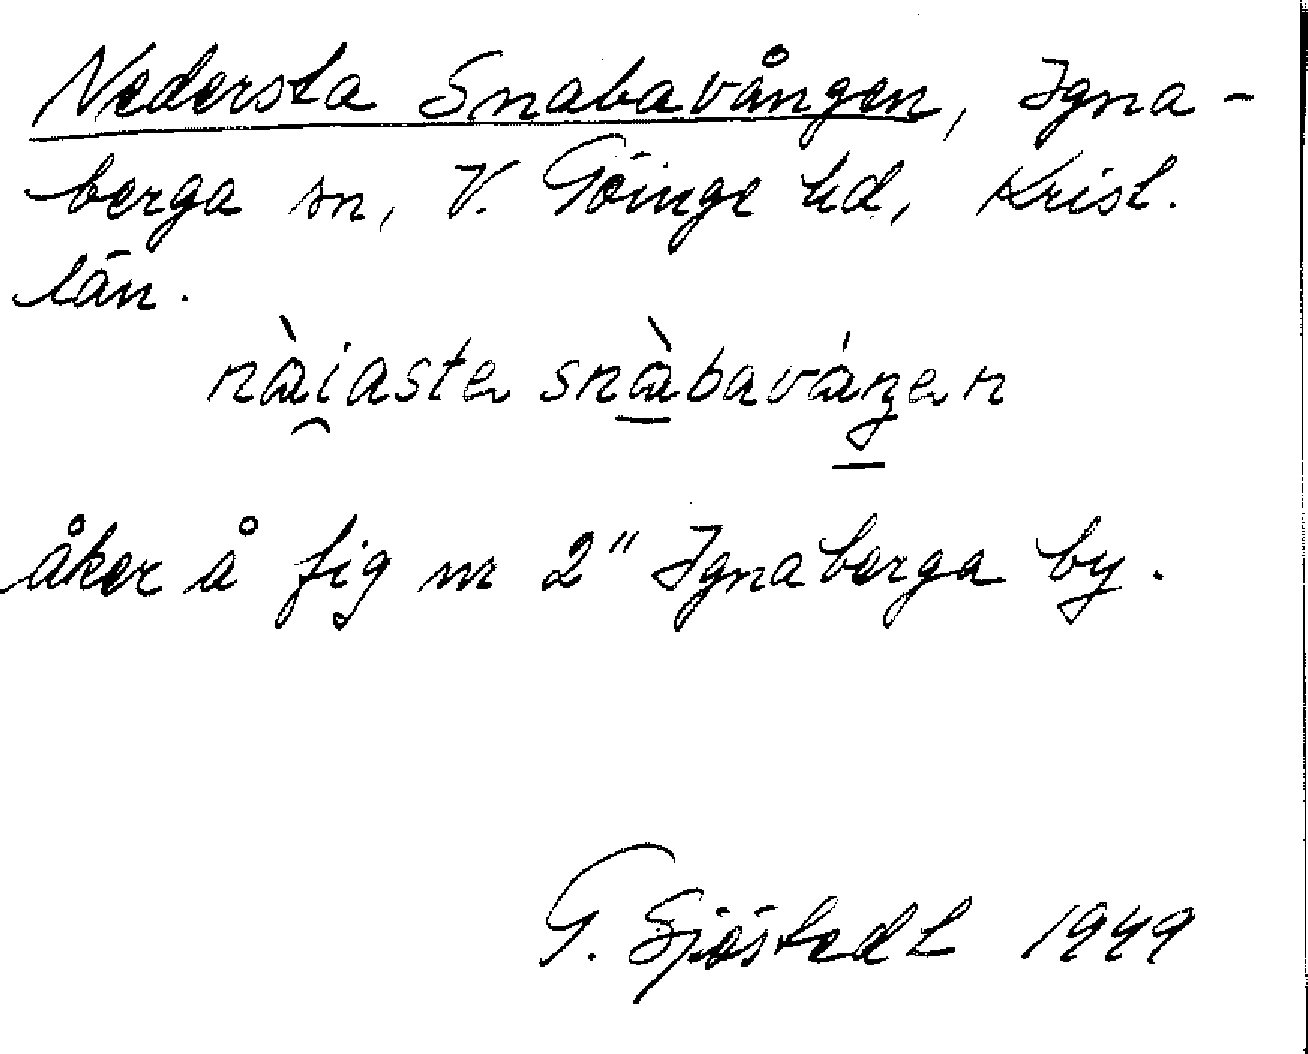 Nedersta Snabavången, Igna-
berga sn, V. Göinge hd, Krist.
län.
nàiasta snàbaváŋen
åker å fig nr 2" Ignaberga by.
G. Sjöstedt 1949